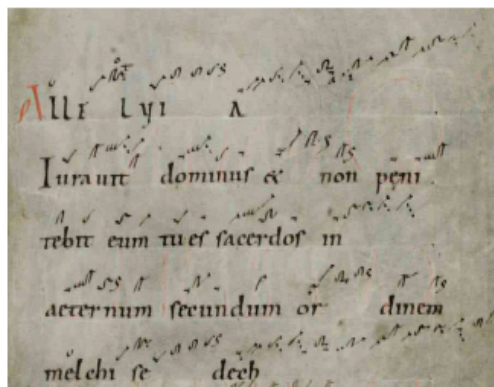 Alle lui a
Iurauit dominus & non peni
tebit eum tu es sacerdos in
aeternum secundum or dinem
melchi se dech